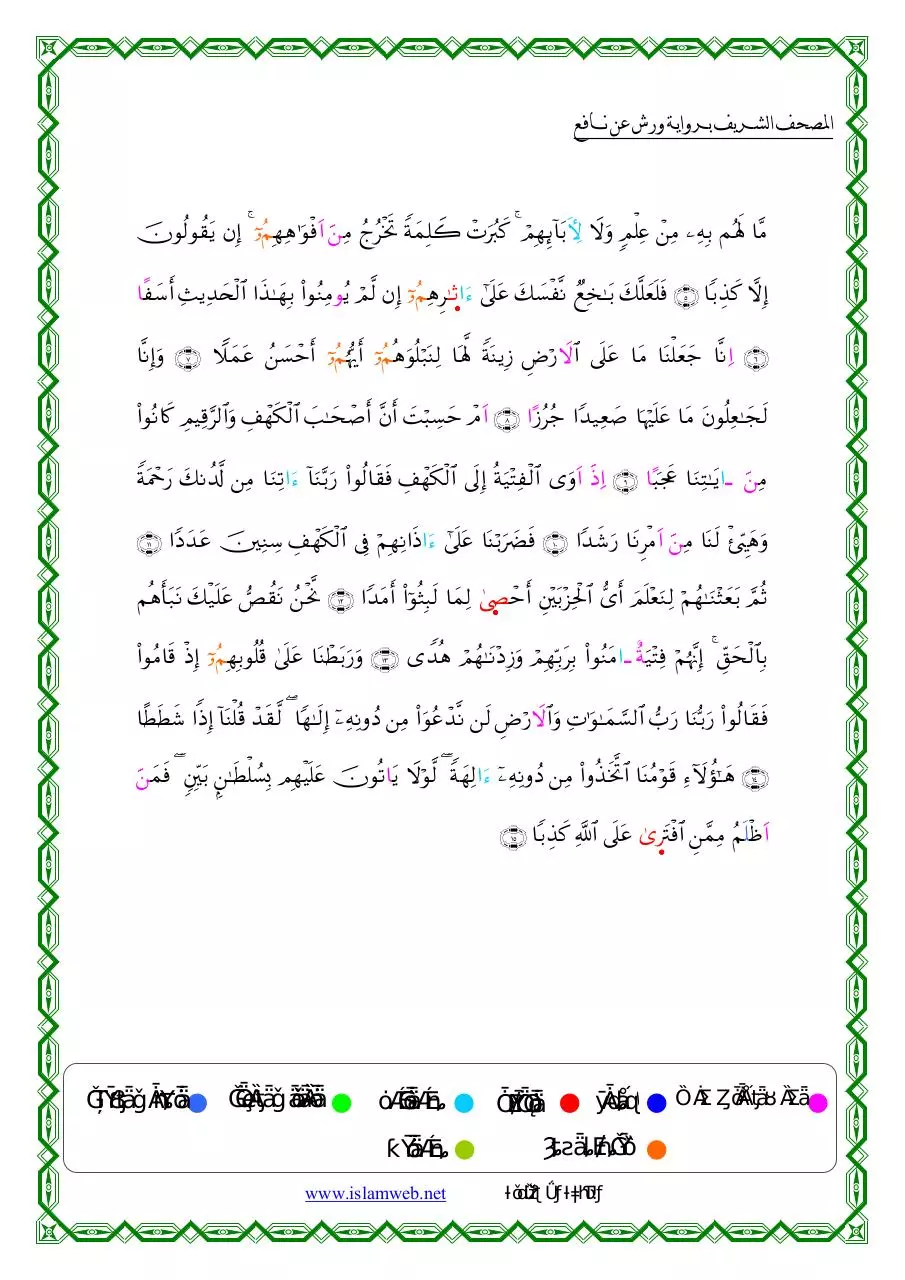 المصحف الشريف برواية ورش عن نافع
مَّا لَهُم بِهِۦ مِنْ عِلْمٍ وَلَا لِأَبَآئِهِمْ ۚ كَبُرَتْ كَلِمَةً تَخْرُجُ مِنَ اَفْوَٰهِهِمُۥٓ ۚ إِن يَقُولُونَ
إِلَّا كَذِبًا ٥ فَلَعَلَّكَ بَٰخِعٌ نَّفْسَكَ عَلَىٰٓ ءَاثَٰرِهِمُۥٓ إِن لَّمْ يُومِنُوا۟ بِهَٰذَا ٱلْحَدِيثِ أَسَفًا
٦ اِنَّا جَعَلْنَا مَا عَلَى ٱلَارْضِ زِينَةً لَّهَا لِنَبْلُوَهُمُۥٓ أَيُّهُمُۥٓ أَحْسَنُ عَمَلًا ٧ وَإِنَّا
لَجَٰعِلُونَ مَا عَلَيْهَا صَعِيدًا جُرُزًا ٨ اَمْ حَسِبْتَ أَنَّ أَصْحَٰبَ ٱلْكَهْفِ وَٱلرَّقِيمِ كَانُوا۟
مِنَ ـايَٰتِنَا عَجَبًا ٩ اِذَ اَوَى ٱلْفِتْيَةُ إِلَى ٱلْكَهْفِ فَقَالُوا۟ رَبَّنَآ ءَاتِنَا مِن لَّدُنكَ رَحْمَةً
وَهَيِّئْ لَنَا مِنَ اَمْرِنَا رَشَدًا ١٠ فَضَرَبْنَا عَلَىٰٓ ءَاذَانِهِمْ فِى ٱلْكَهْفِ سِنِينَ عَدَدًا ١١
ثُمَّ بَعَثْنَٰهُمْ لِنَعْلَمَ أَىُّ ٱلْحِزْبَيْنِ أَحْصٜىٰ لِمَا لَبِثُوٓا۟ أَمَدًا ١٢ نَّحْنُ نَقُصُّ عَلَيْكَ نَبَأَهُم
بِٱلْحَقِّ ۚ إِنَّهُمْ فِتْيَةٌ ـامَنُوا۟ بِرَبِّهِمْ وَزِدْنَٰهُمْ هُدًى ١٣ وَرَبَطْنَا عَلَىٰ قُلُوبِهِمُۥٓ إِذْ قَامُوا۟
فَقَالُوا۟ رَبُّنَا رَبُّ ٱلسَّمَٰوَٰتِ وَٱلَارْضِ لَن نَّدْعُوَا۟ مِن دُونِهِۦٓ إِلَٰهًا ۖ لَّقَدْ قُلْنَآ إِذًا شَطَطًا
١٤ هَٰٓؤُلَآءِ قَوْمُنَا ٱتَّخَذُوا۟ مِن دُونِهِۦٓ ءَالِهَةً ۖ لَّوْلَا يَاتُونَ عَلَيْهِم بِسُلْطَٰنٍۭ بَيِّنٍ ۖ فَمَنَ
اَظْلَمُ مِمَّنِ ٱفْتَرٜىٰ عَلَى ٱللَّهِ كَذِبًا ١٥
www.islamweb.net